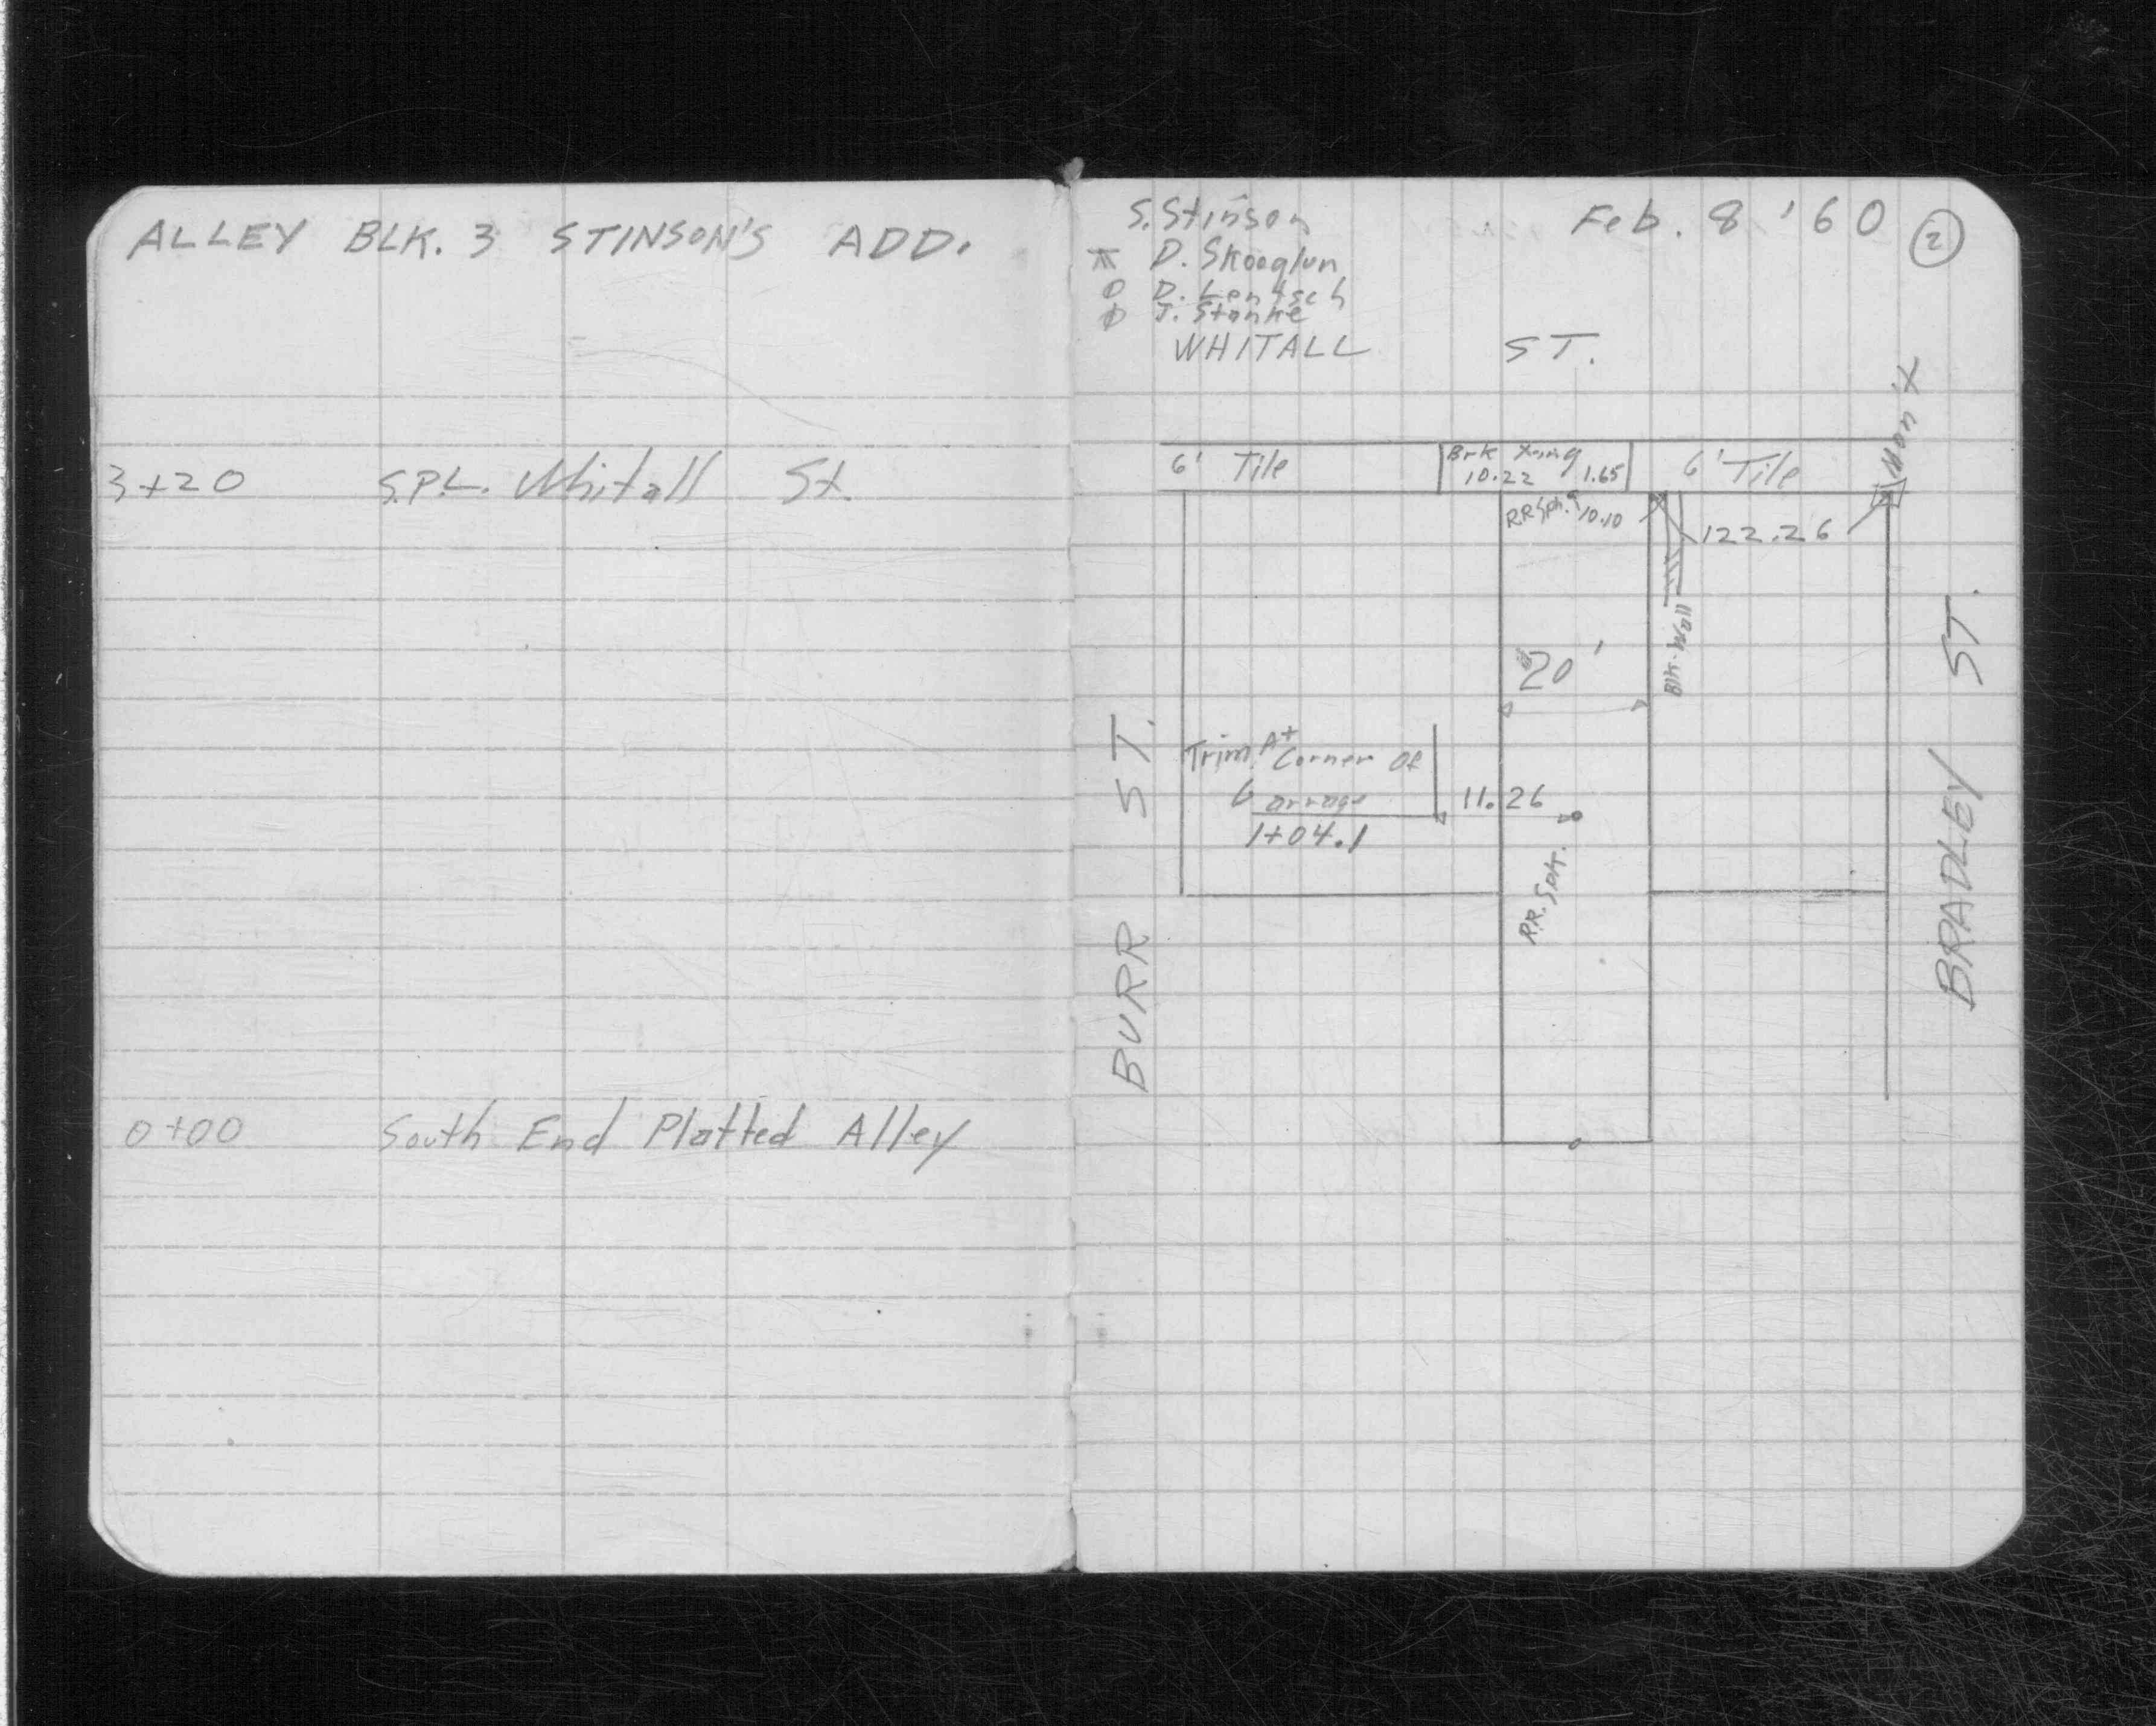 ALLEY BLK. 3 STINSON'S ADD.
3+20 S.P.L. Whitall St.
0+00 South End Platted Alley
S. Stinson
Feb. 8 '60 2
D. Skooglun
D. Lentsch
J. Stanke
WHITALL ST.
Mon X
6' Tile
Brk Xing
10.22 1.65
6' Tile
R.R. Spk. 10.10
122.26
Blk. Wall
20'
Trim At Corner Of
Garrage
1+04.1
11.26
R.R. Spk.
BURR ST.
BRADLEY ST.